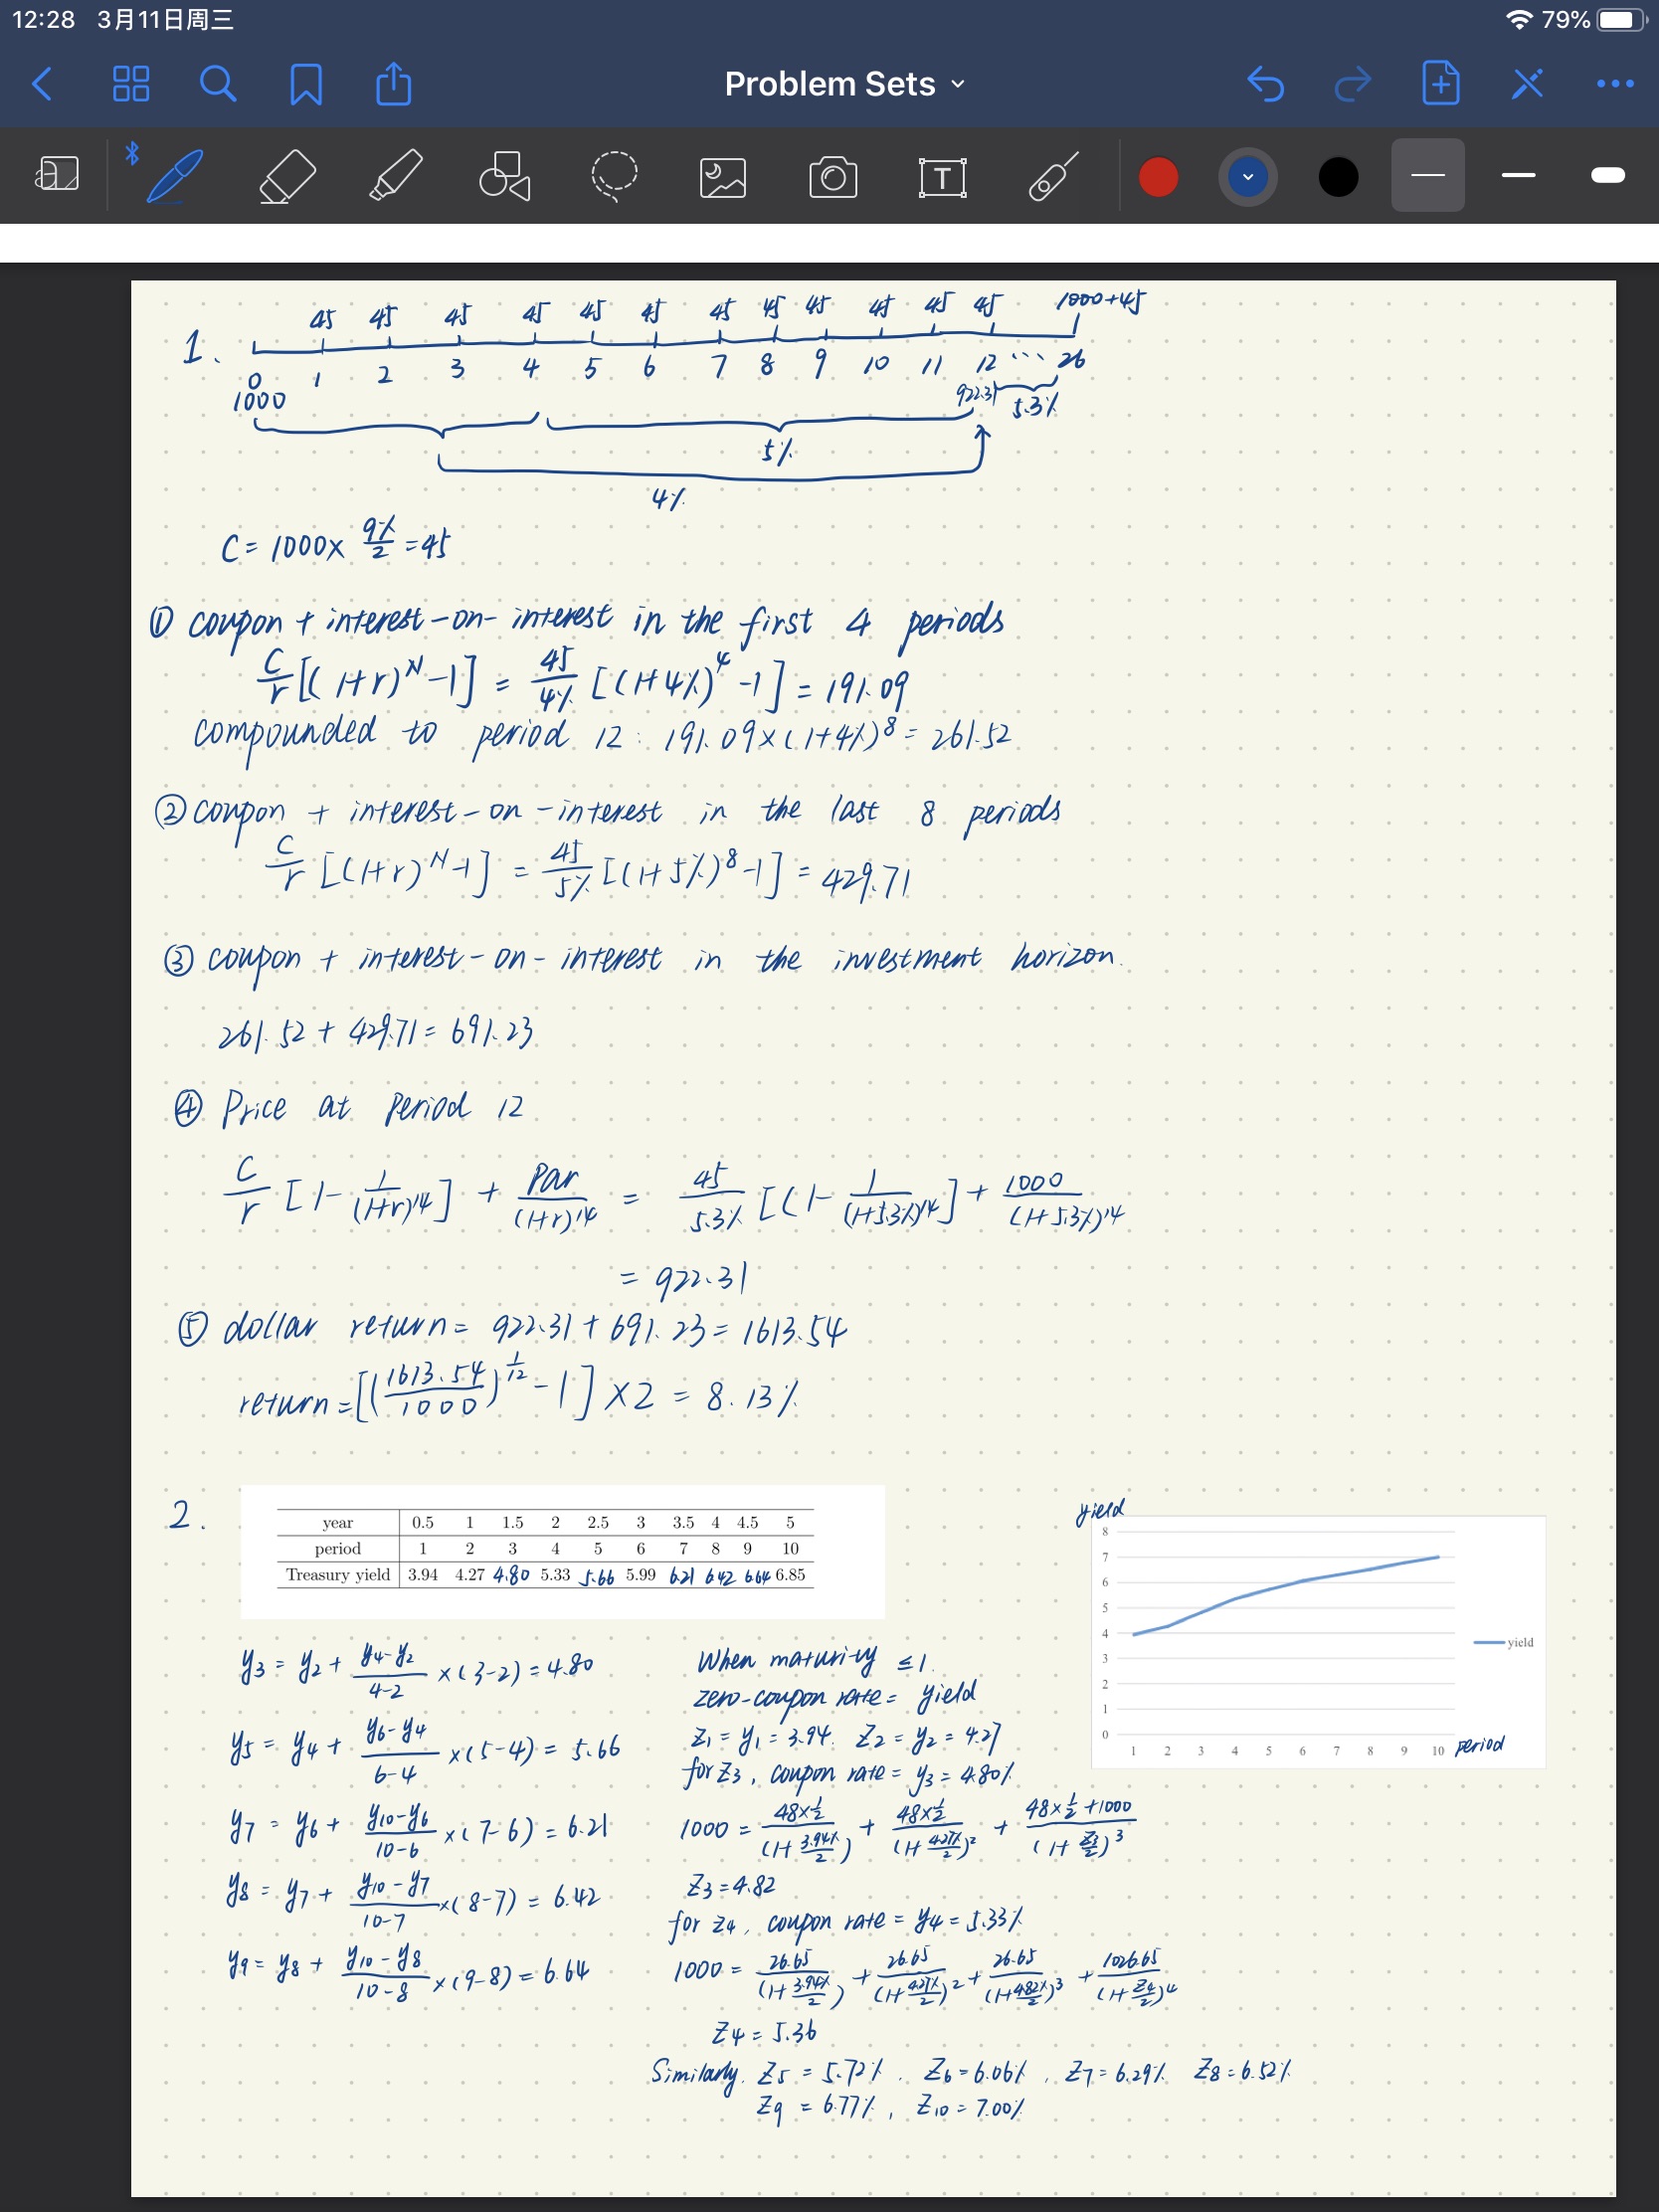 12:28 3月11日周三 79%
Problem Sets
T
1.
45 45 45 45 45 45 45 45 45 45 45 45 1000+45
0 1 2 3 4 5 6 7 8 9 10 11 12 ... 26
1000 922.31 5.3%
5%
4%
C = 1000 × 9%/2 = 45
① coupon + interest-on-interest in the first 4 periods
C/r [(1+r)^N -1] = 45/4% [(1+4%)^4 -1] = 191.09
compounded to period 12: 191.09×(1+4%)^8 = 261.52
② coupon + interest-on-interest in the last 8 periods
C/r [(1+r)^N -1] = 45/5% [(1+5%)^8 -1] = 429.71
③ coupon + interest-on-interest in the investment horizon.
261.52 + 429.71 = 691.23
④ Price at Period 12
C/r [1- 1/(1+r)^14] + Par/(1+r)^14 = 45/5.3% [(1- 1/(1+5.3%)^14] + 1000/(1+5.3%)^14
= 922.31
⑤ dollar return = 922.31 + 691.23 = 1613.54
return = [(1613.54/1000)^1/12 - 1] × 2 = 8.13%
2.
year 0.5 1 1.5 2 2.5 3 3.5 4 4.5 5
period 1 2 3 4 5 6 7 8 9 10
Treasury yield 3.94 4.27 4.80 5.33 5.66 5.99 6.21 6.42 6.64 6.85
yield
8
7
6
5
4
3
2
1
0
1 2 3 4 5 6 7 8 9 10 period
yield
y3 = y2 + (y4-y2)/(4-2) × (3-2) = 4.80
y5 = y4 + (y6-y4)/(6-4) × (5-4) = 5.66
y7 = y6 + (y10-y6)/(10-6) × (7-6) = 6.21
y8 = y7 + (y10-y7)/(10-7) × (8-7) = 6.42
y9 = y8 + (y10-y8)/(10-8) × (9-8) = 6.64
When maturity ≤ 1.
zero-coupon rate = yield
Z1 = y1 = 3.94. Z2 = y2 = 4.27
for Z3, coupon rate = y3 = 4.80%
1000 = 48×½/(1+3.94%/2) + 48×½/(1+4.27%/2)^2 + 48×½+1000/(1+Z3/2)^3
Z3 = 4.82
for Z4, coupon rate = y4 = 5.33%
1000 = 26.65/(1+3.94%/2) + 26.65/(1+4.27%/2)^2 + 26.65/(1+4.82%/2)^3 + 1026.65/(1+Z4/2)^4
Z4 = 5.36
Similarly. Z5 = 5.72%, Z6 = 6.06%, Z7 = 6.29% Z8 = 6.52%
Z9 = 6.77%, Z10 = 7.00%